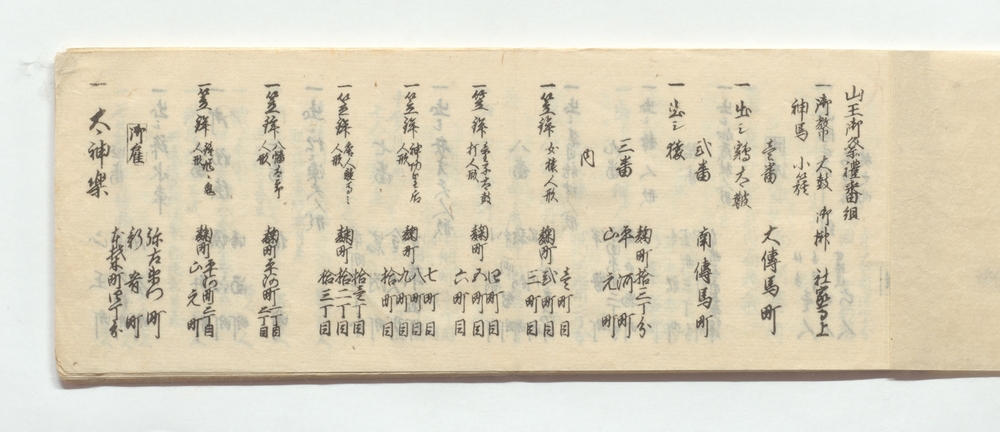 山王御祭禮番組
一 御幣 大鼓 御榊 社家馬上
神馬 小籏
壱番 大傳馬町
一 出シ 鶏太鼓
弐番 南傳馬町
一 出シ 猿
三番 麹町拾三丁分 平河町 山元町
内
一 笠鉾 女猿人形 麹町 壱町目 弐町目 三町目
一 笠鉾 童子太鼓打人形 麹町 四町目 五町目 六町目
一 笠鉾 神功皇后人形 麹町 七町目 八町目 九町目 拾町目
一 笠鉾 唐人 人形 麹町 拾壱丁目 拾二丁目 拾三丁目
一 笠鉾 八幡太郎人形 麹町平河町 丁目 二丁目
一 笠鉾 鍾馗 鬼人形 麹町平河町三丁目 山元町
御雇 弥左衛門町 新肴町 本材木町四丁分
一 大神樂